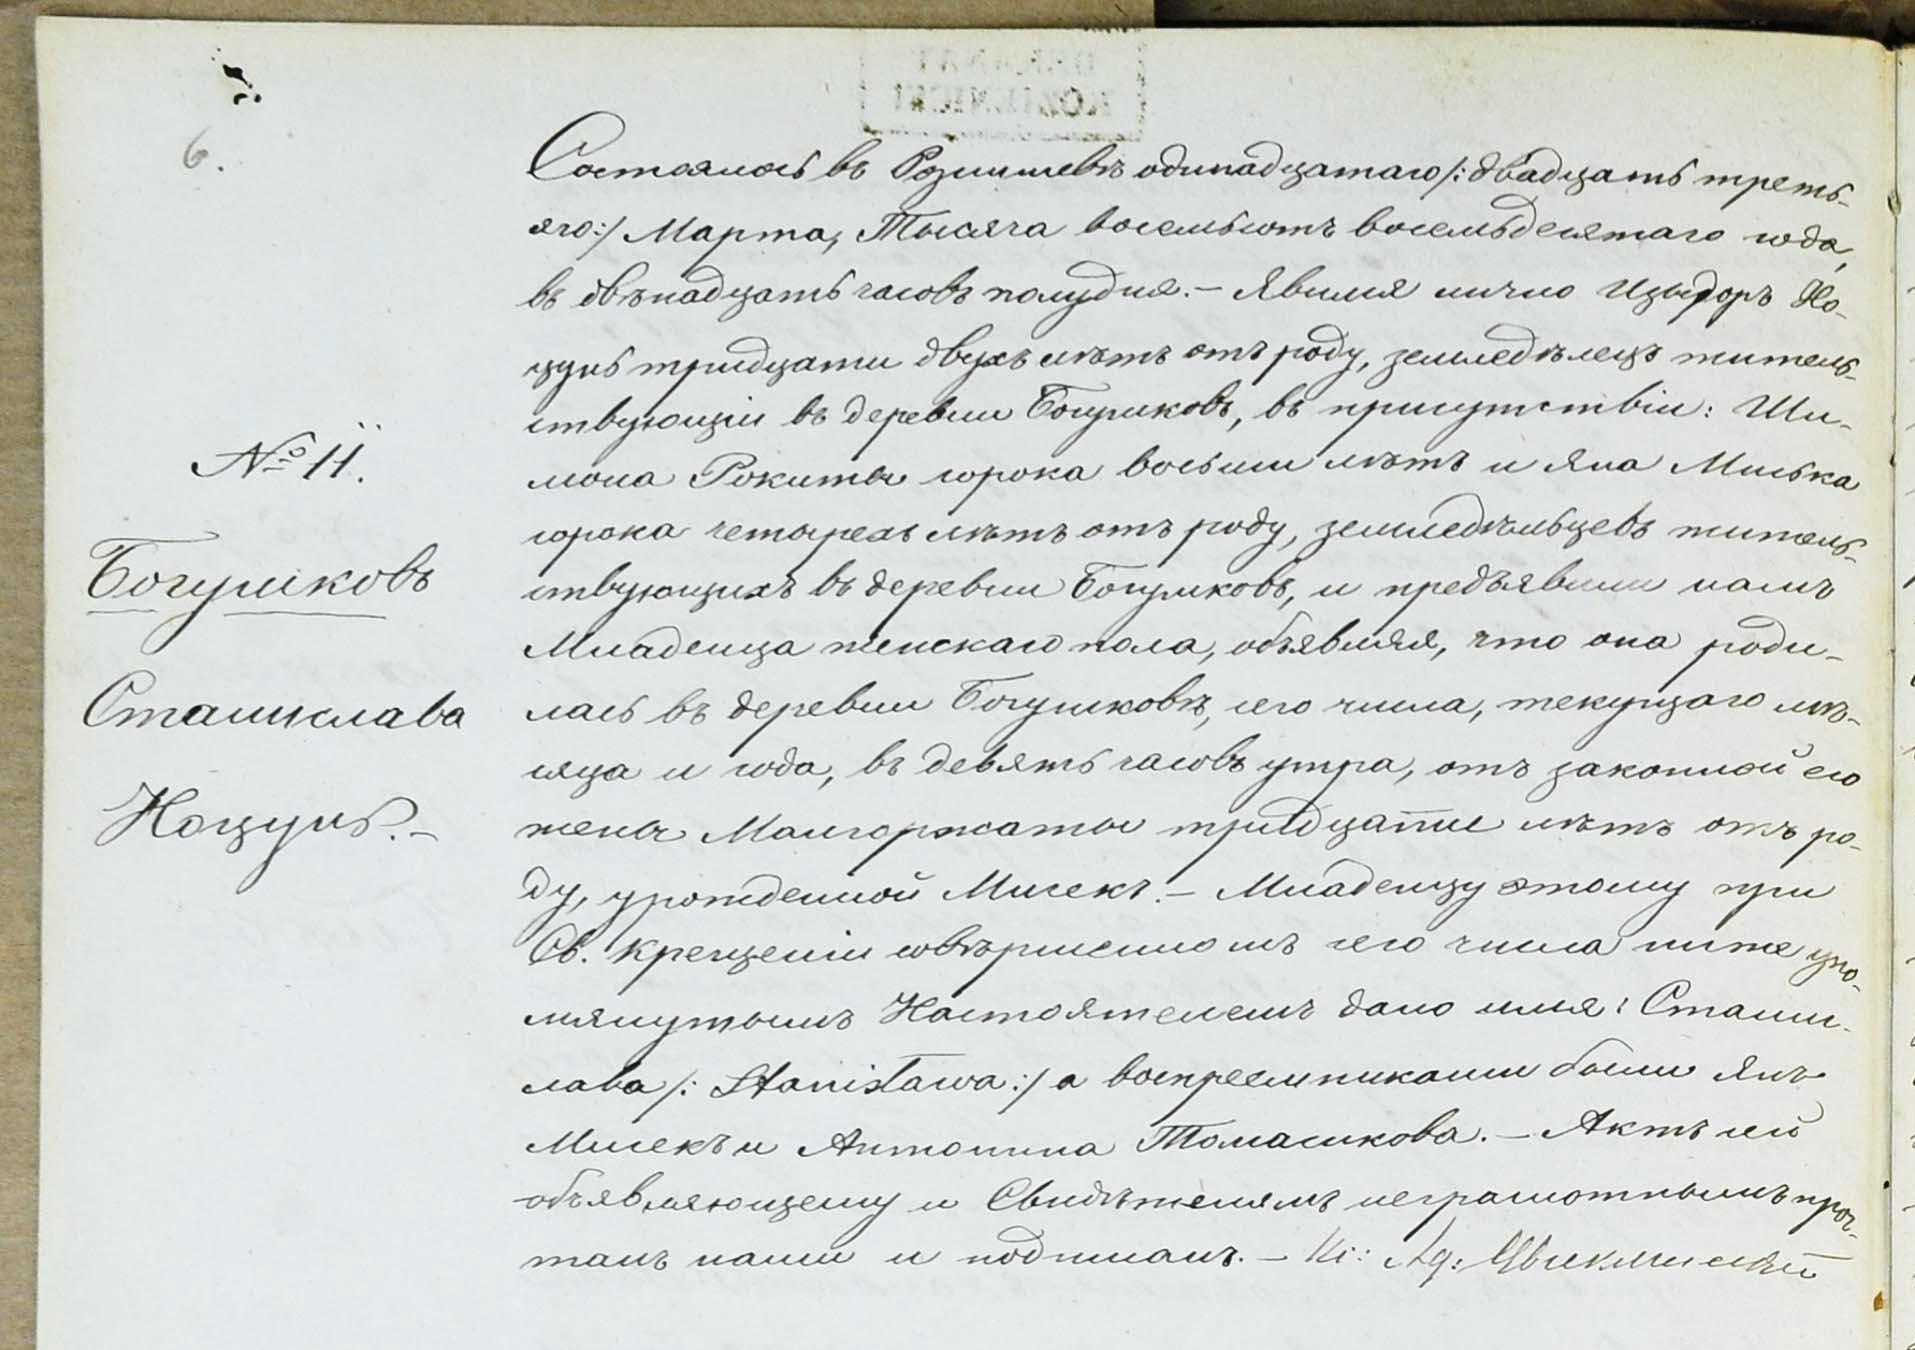 6.
Состоялось въ Розмишевѣ одинадцатаго /: двадцать треть-
яго :/ Марта, Тысяча восемьсотъ восемьдесятаго года,
въ двѣнадцать часовъ полудня. – Явился лично Изыдоръ Но-
цунь тридцати двухъ лѣтъ отъ роду, земледѣлецъ житель-
ствующiи въ деревни Богушковъ, въ присутствiи: Ши-
№ 11.
мона Рокиты сорока восьми лѣтъ и Яна Миська
сорока четырехъ лѣтъ отъ роду, земледѣльцевъ житель-
Богушковъ
ствующихъ въ деревни Богушковъ, и предъявили намъ
Младенца женскаго пола, объявляя, что она роди-
Станислава
лась въ деревни Богушковъ, сего числа, текущаго мѣ-
сяца и года, въ девять часовъ утра, отъ законной его
Ноцунь. –
жены Малгоржаты тридцати лѣтъ отъ ро-
ду, урожденной Мисекъ. – Младенцу этому при
Св. Крещенiи совѣршенномъ сего числа ниже упо-
мянутымъ Настоятелемъ дано имя: Стани-
лава /: Stanisława :/ а воспреемниками были Янъ
Мисекъ и Антонина Томасикова. – Актъ сей
объявляющему и Свидѣтелямъ неграмотнымъ проч-
танъ нами и подписанъ. – Кс: